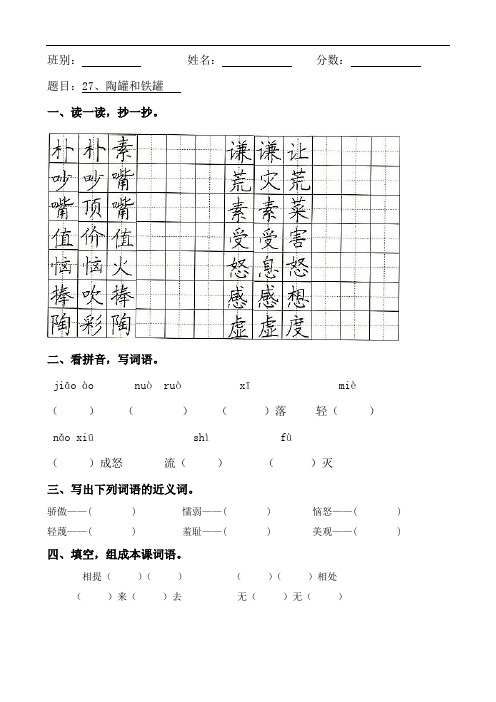 班别： 姓名： 分数：
题目：27、陶罐和铁罐
一、读一读，抄一抄。
朴 朴 素 谦 谦 让
吵 吵 嘴 荒 灾 荒
嘴 顶 嘴 素 素 菜
值 价 值 受 受 害
恼 恼 火 怒 息 怒
捧 吹 捧 感 感 想
陶 彩 陶 虚 虚 度
二、看拼音，写词语。
jiāo ào nuò ruò xī miè
（ ） （ ） （ ）落 轻（ ）
nǎo xiū shì fù
（ ）成怒 流（ ） （ ）灭
三、写出下列词语的近义词。
骄傲——( ) 懦弱——( ) 恼怒——( )
轻蔑——( ) 羞耻——( ) 美观——( )
四、填空，组成本课词语。
相提（ ）（ ） （ ）（ ）相处
（ ）来（ ）去 无（ ）无（ ）